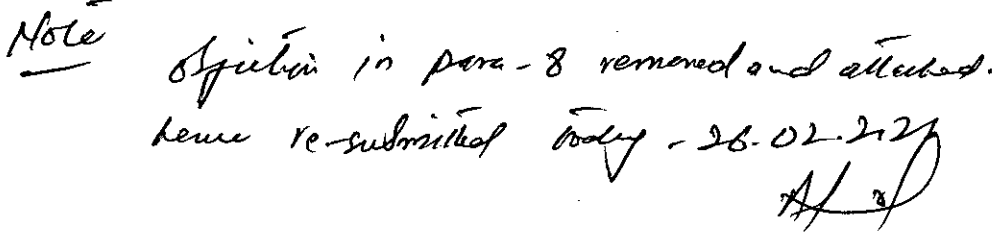 Note
Objection in para-8 removed and attached.
hence re-submitted today - 26-02-